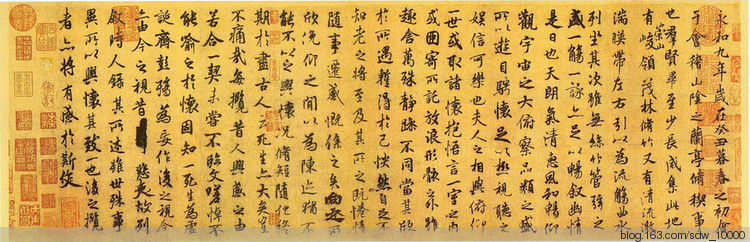 永和九年歲在癸丑暮春之初會
于會稽山陰之蘭亭脩稧事
也羣賢畢至少長咸集此地
有崇山峻領茂林脩竹又有清流激
湍暎帶左右引以為流觴曲水
列坐其次雖無絲竹管弦之
盛一觴一詠亦足以暢敘幽情
是日也天朗氣清惠風和暢仰
觀宇宙之大俯察品類之盛
所以遊目騁懷足以極視聽之
娛信可樂也夫人之相與俯仰
一世或取諸懷抱悟言一室之內
或因寄所託放浪形骸之外雖
趣舍萬殊靜躁不同當其欣
於所遇暫得於己怏然自足不
知老之將至及其所之既惓情
隨事遷感慨係之矣向之所
欣俛仰之閒以為陳迹猶不
能不以之興懷況脩短隨化終
期於盡古人云死生亦大矣豈
不痛哉每攬昔人興感之由
若合一契未嘗不臨文嗟悼不
能喻之於懷固知一死生為虛
誕齊彭殤為妄作後之視今
亦由今之視昔悲夫故列
敘時人錄其所述雖世殊事
異所以興懷其致一也後之攬
者亦將有感於斯文
blog.163.com/sdw_10000